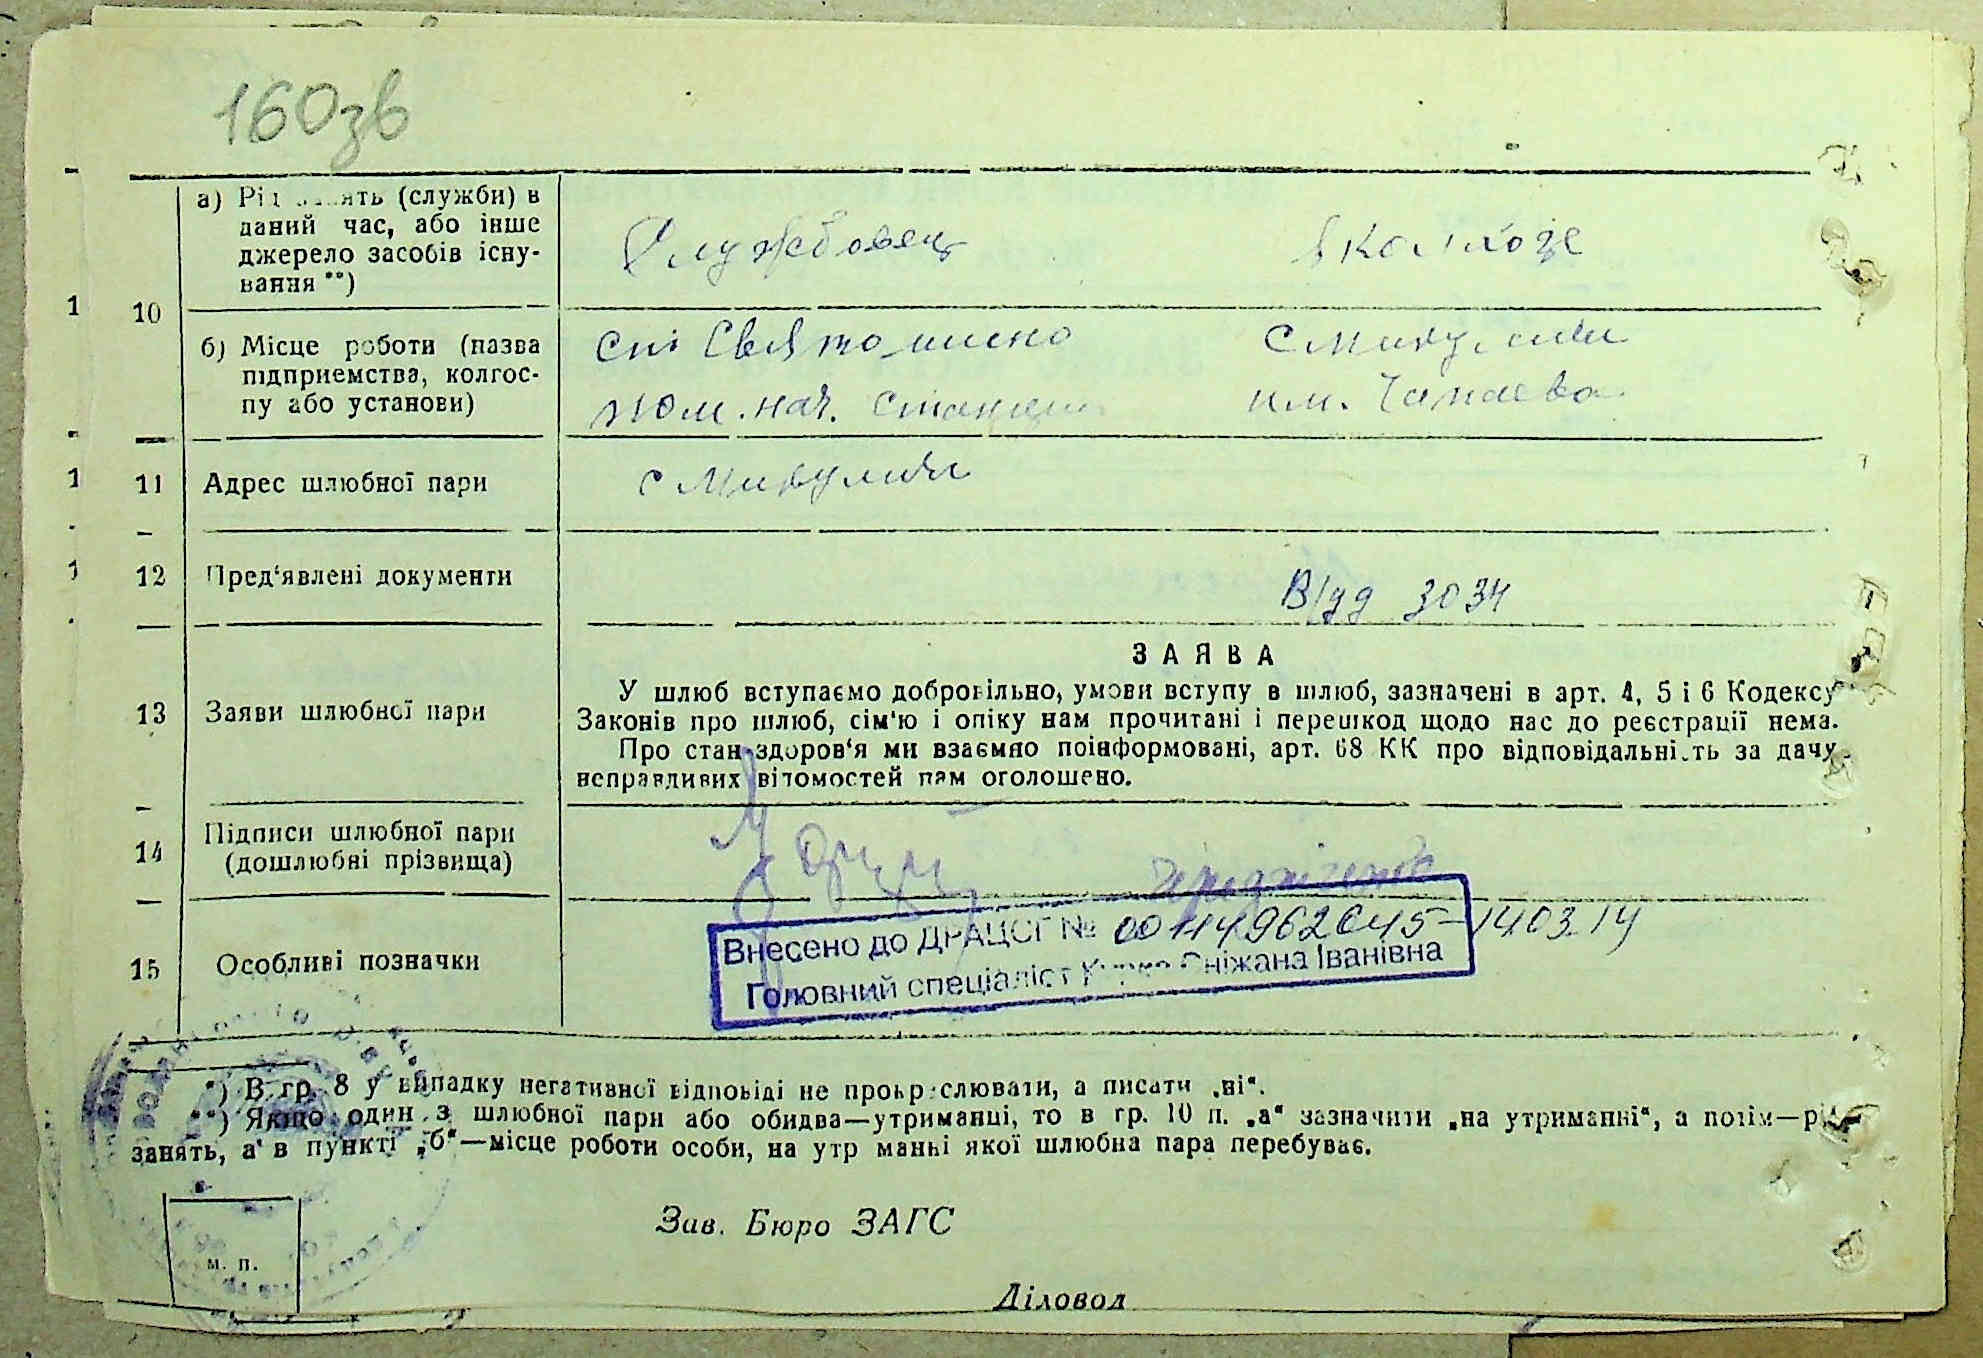 160зв
а) Рід занять (служби) в
даний час, або інше
джерело засобів існу-
вання **)
Службовець
в колхозе
10
б) Місце роботи (назва
підприємства, колгос-
пу або установи)
ст Святошино
пом. нач. станции
с Микуличи
им. Чапаева
11 Адрес шлюбної пари
с Микуличи
12 Пред'явлені документи
В/уд 3034
13 Заяви шлюбної пари
ЗАЯВА
У шлюб вступаємо добровільно, умови вступу в шлюб, зазначені в арт. 4, 5 і 6 Кодексу
Законів про шлюб, сім'ю і опіку нам прочитані і перешкод щодо нас до реєстрації нема.
Про стан здоров'я ми взаємно поінформовані, арт. 68 КК про відповідальність за дачу
неправдивих відомостей нам оголошено.
14 Підписи шлюбної пари
(дошлюбні прізвища)
15 Особливі позначки
Внесено до ДРАЦСГ № 00114962645-14.03.14
Головний спеціаліст Сніжана Іванівна
*) В гр. 8 у випадку негативної відповіді не прокреслювати, а писати „ні“.
**) Якщо один з шлюбної пари або обидва—утриманці, то в гр. 10 п. „а“ зазначити „на утриманні“, а потім—рід
занять, а в пункті „б“—місце роботи особи, на утриманні якої шлюбна пара перебуває.
Зав. Бюро ЗАГС
м. п.
Діловод